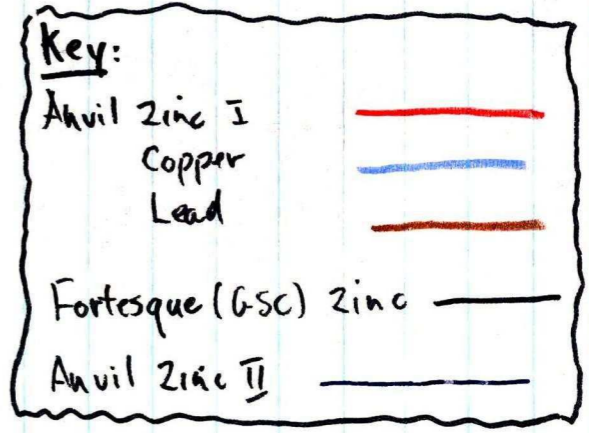 Key:
Anvil Zinc I
Copper
Lead
Fortesque (GSC) Zinc
Anvil Zinc II